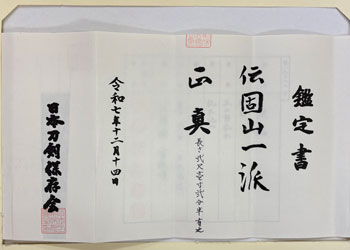 鑑定書
伝固山一派
正真
長さ弐尺壱寸弐分半有之
令和七年十二月十四日
日本刀剣保存会